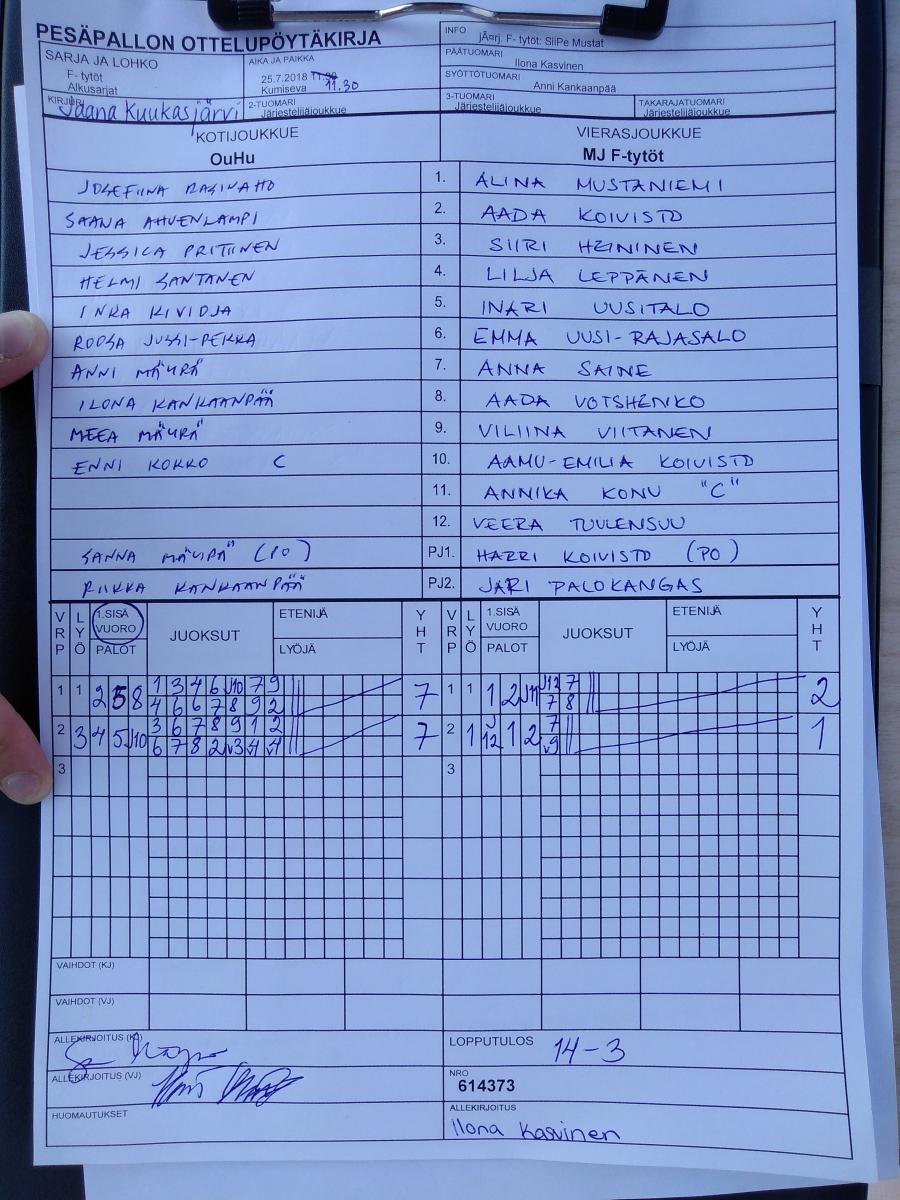 PESÄPALLON OTTELUPÖYTÄKIRJA
INFO jÃ¤rj. F- tytöt: SiiPe Mustat
PÄÄTUOMARI Ilona Kasvinen
SYÖTTÖTUOMARI Anni Kankaanpää
SARJA JA LOHKO
F- tytöt
Alkusarjat
AIKA JA PAIKKA
25.7.2018 11.30
Kumiseva
KIRJURI Jaana Kuukasjärvi
2-TUOMARI Järjestelijäjoukkue
3-TUOMARI Järjestelijäjoukkue
TAKARAJATUOMARI Järjestelijäjoukkue
KOTIJOUKKUE VIERASJOUKKUE
OuHu MJ F-tytöt
JOSEFIINA RASINAHO 1. ALINA MUSTANIEMI
SAANA AHVENLAMPI 2. AADA KOIVISTO
JESSICA PRITTINEN 3. SIIRI HEININEN
HELMI SANTANEN 4. LILJA LEPPÄNEN
INKA KIVIOJA 5. INARI UUSITALO
ROOSA JUSSI-PEKKA 6. EMMA UUSI-RAJASALO
ANNI MÄYRÄ 7. ANNA SAINE
ILONA KANKAANPÄÄ 8. AADA VOTSHENKO
MEEA MÄYRÄ 9. VILIINA VIITANEN
ENNI KOKKO C 10. AAMU-EMILIA KOIVISTO
11. ANNIKA KONU "C"
12. VEERA TUULENSUU
SANNA MÄYRÄ (PO) PJ1. HARRI KOIVISTO (PO)
RIIKKA KANKAANPÄÄ PJ2. JARI PALOKANGAS
VRP LYÖ 1.SISÄ VUORO PALOT JUOKSUT ETENIJÄ LYÖJÄ YHT VRP LYÖ 1.SISÄ VUORO PALOT JUOKSUT ETENIJÄ LYÖJÄ YHT
1 1 2 5 8 1 3 4 6 J10 7 9 7 1 1 1 2 J11 J12 7 2
4 6 6 7 8 9 2 7 8
2 3 4 5 J10 3 6 7 8 9 1 2 7 2 1 J12 1 2 7 1
6 7 8 2 v3 4 v4 v9
3 3
VAIHDOT (KJ)
VAIHDOT (VJ)
ALLEKIRJOITUS (KJ)
LOPPUTULOS 14-3
ALLEKIRJOITUS (VJ)
NRO
614373
HUOMAUTUKSET
ALLEKIRJOITUS
Ilona Kasvinen